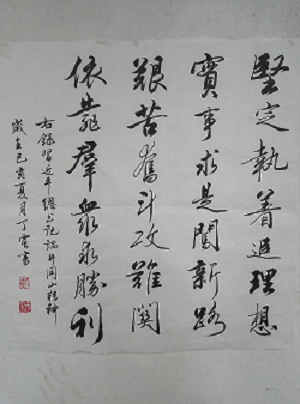 堅定執着追理想
實事求是闖新路
艱苦奮鬥攻難關
依靠群眾求勝利
右錄習近平總書記論井岡山精神
歲在己亥夏月丁雷書